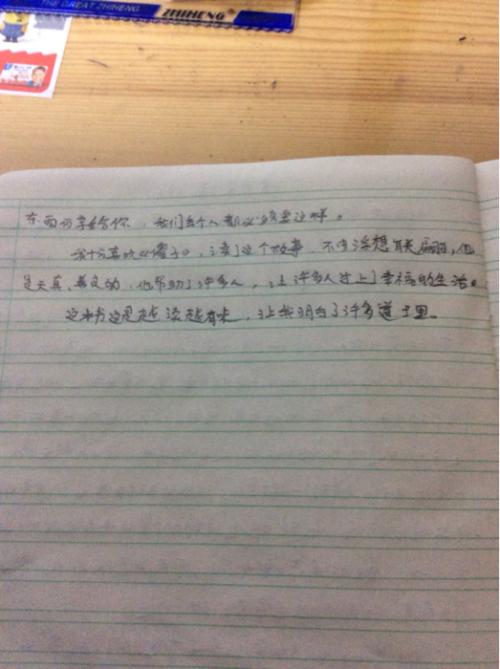 THE GREAT ZHIHENG ZHIHENG
东西分享给你，我们每个人都必须要这样。
我十分喜欢《傻子》，读了这个故事，不由浮想联翩，他
是天真、善良的，他帮助了许多人，让许多人过上了幸福的生活。
这本书真是越读越有味，让我明白了许多道理。